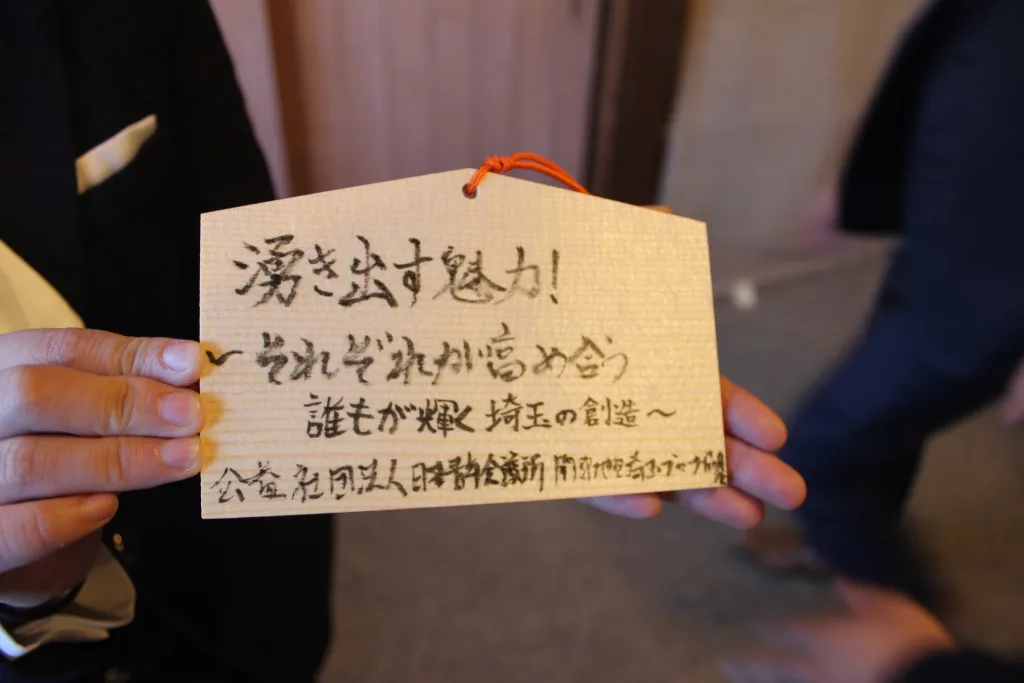 湧き出す魅力!
〜それぞれが高め合う
誰もが輝く埼玉の創造〜
公益社団法人日本青年会議所 関東地区埼玉ブロック協議会